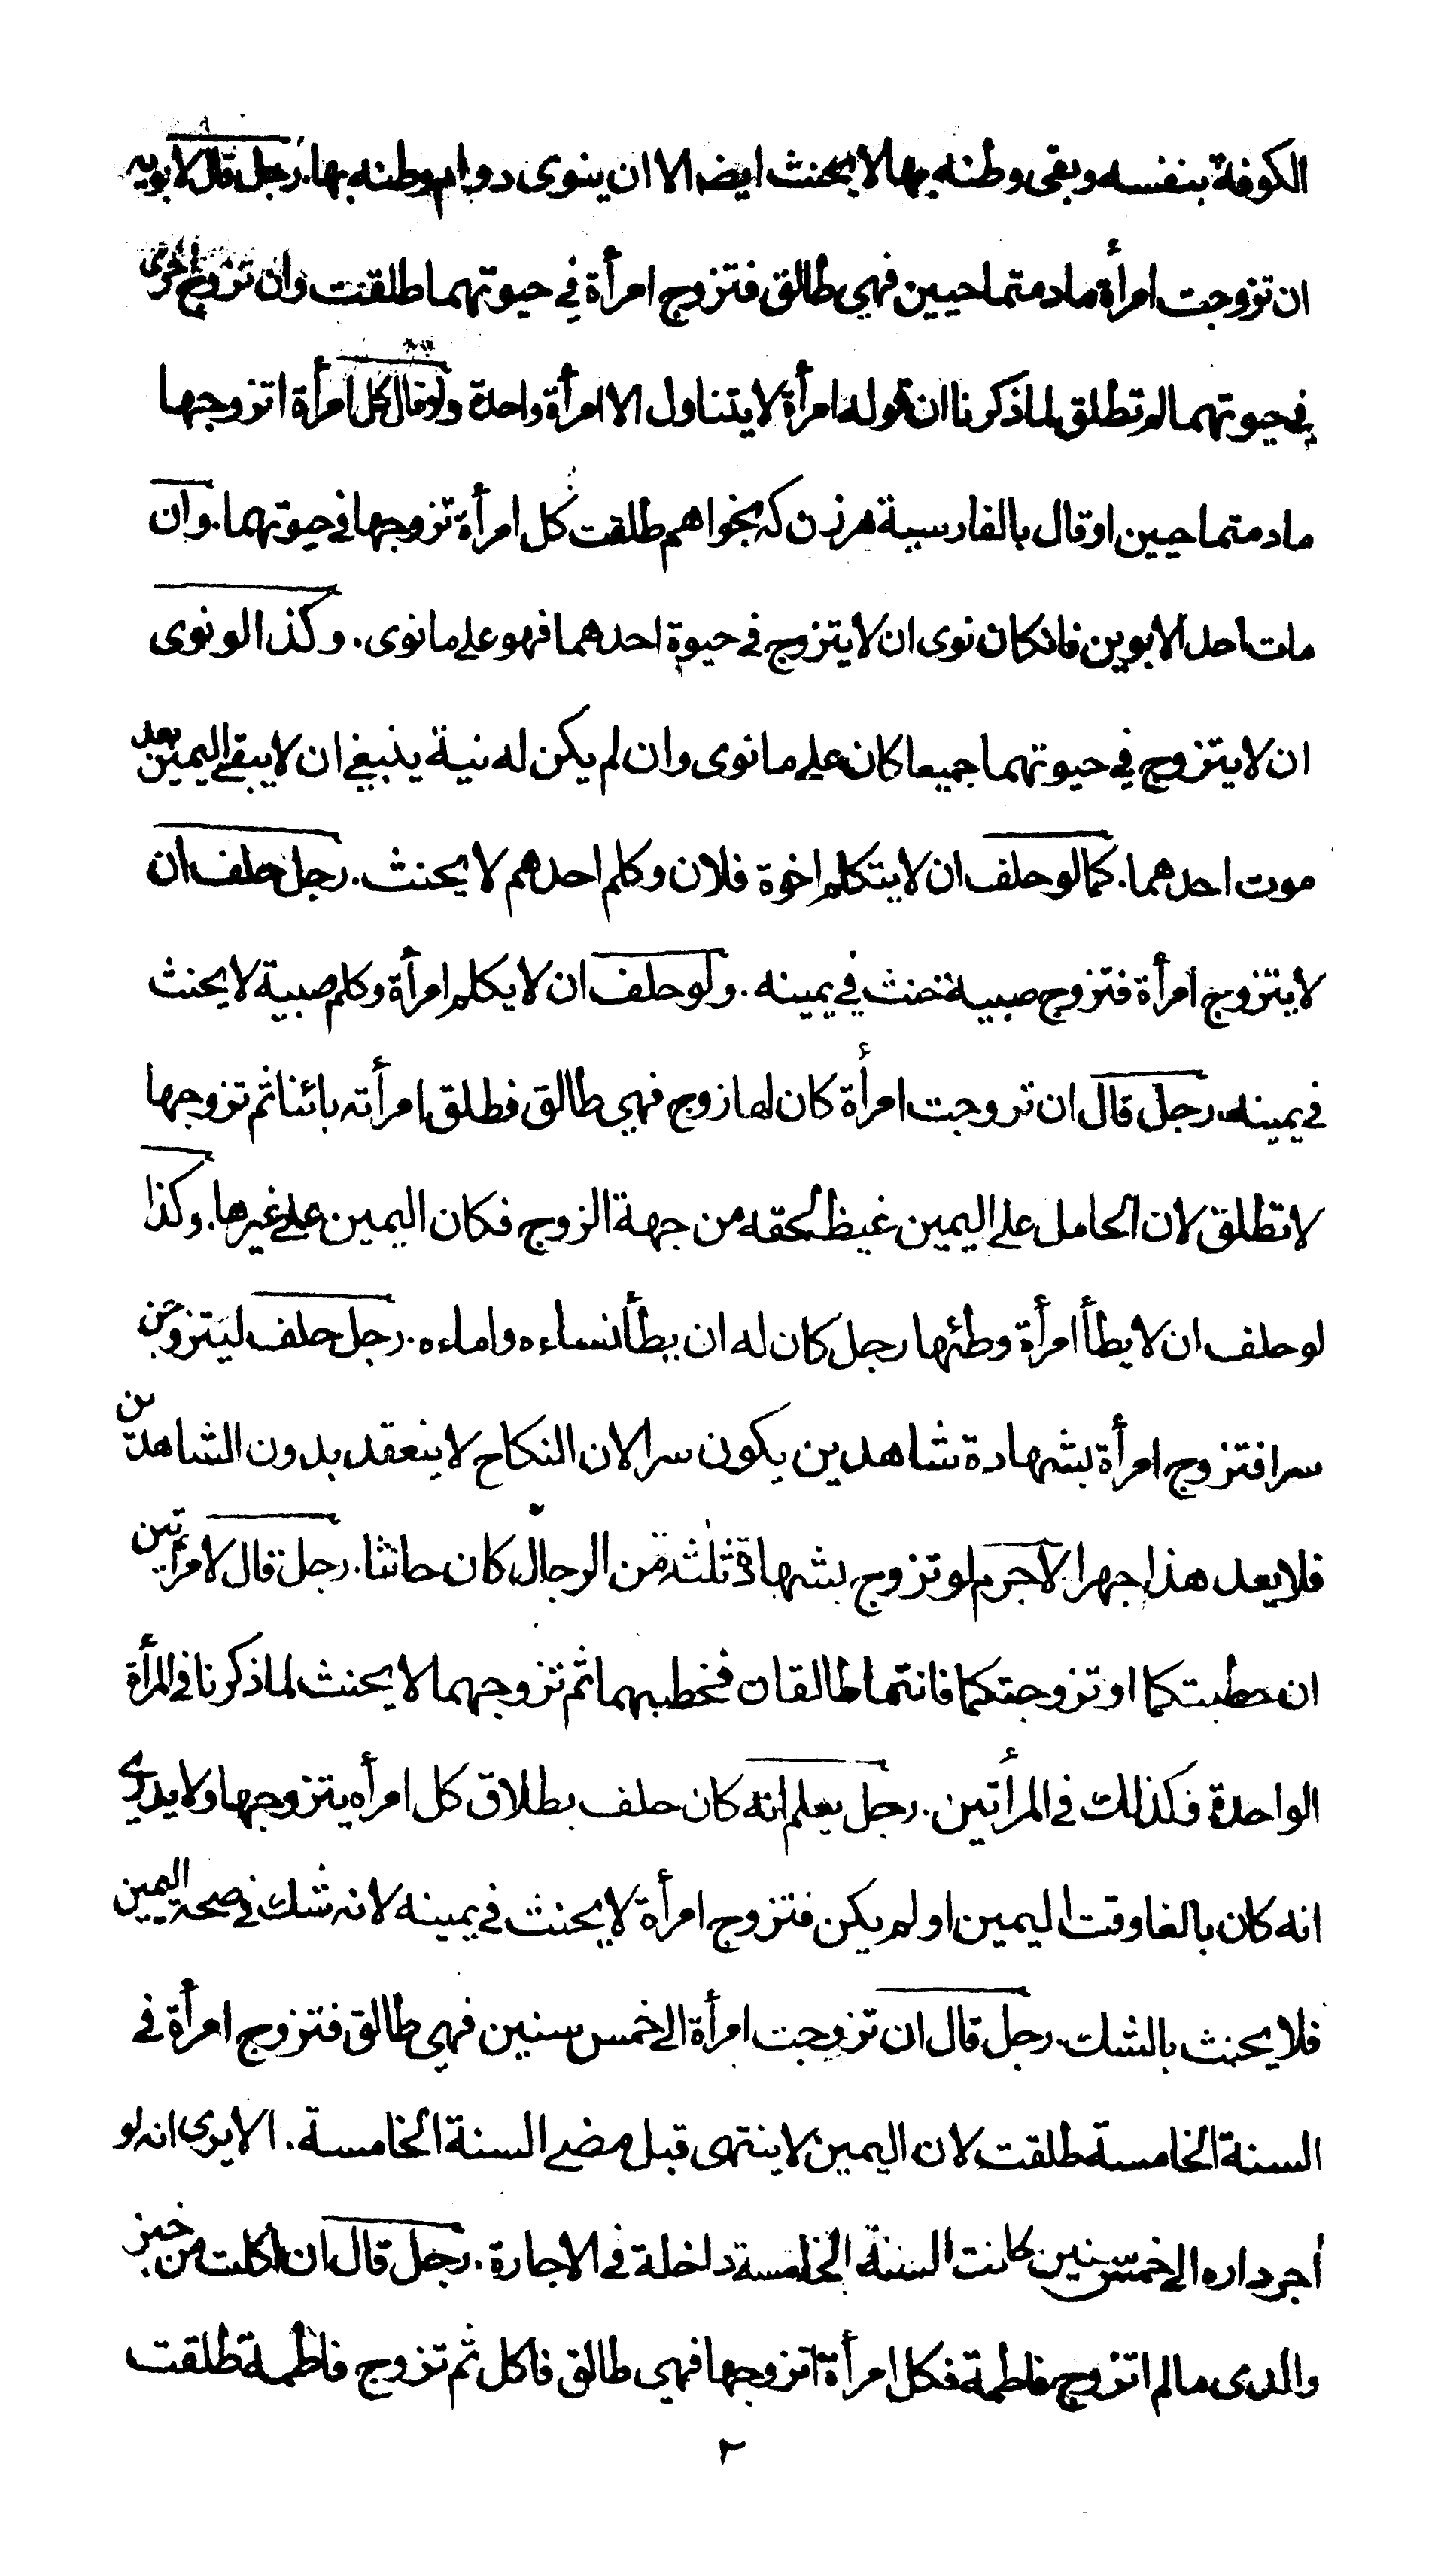 الكوفة بنفسه وبقى وطنه بها لا يحنث ايضا الا ان ينوى دوام وطنه بها. رجل قال لابويه
ان تزوجت امرأة مادمتما حيين فهي طالق فتزوج امرأة في حيوتهما طلقت وان تزوج اخرى
في حيوتهما لم تطلق لما ذكرنا ان قوله امرأة لا يتناول الا امرأة واحدة ولو قال كل امرأة اتزوجها
مادمتما حيين او قال بالفارسية هرزن كه بخواهم طلقت كل امرأة تزوجها في حيوتهما. وان
مات احد الابوين فانكان نوى ان لا يتزوج في حيوة احدهما فهو على ما نوى. وكذا لو نوى
ان لا يتزوج في حيوتهما جميعا كان على ما نوى وان لم يكن له نية ينبغي ان لا يبقى اليمين بعد
موت احدهما. كما لو حلف ان لا يتكلم اخوة فلان وكلم احدهم لا يحنث. رجل حلف ان
لا يتزوج امرأة فتزوج صبية حنث في يمينه. ولو حلف ان لا يكلم امرأة وكلم صبية لا يحنث
في يمينه. رجل قال ان تزوجت امرأة كان لها زوج فهي طالق فطلق امرأته بائنا ثم تزوجها
لا تطلق لان الحامل على اليمين غيظ لحقه من جهة الزوج فكان اليمين على غيرها. وكذا
لو حلف ان لا يطأ امرأة وطئها رجل كان له ان يطأ نساءه واماءه. رجل حلف ليتزوجن
سرا فتزوج امرأة بشهادة شاهدين يكون سرا لان النكاح لا ينعقد بدون الشاهدين
فلا يعد هذا جهرا لاجرم لو تزوج بشهادة ثلثة من الرجال كان حانثا. رجل قال لامرأتين
ان خطبتكما او تزوجتكما فانتما طالقان فخطبهما ثم تزوجهما لا يحنث لما ذكرنا في المرأة
الواحدة فكذلك في المرأتين. رجل يعلم انه كان حلف بطلاق كل امرأه يتزوجها ولا يدرى
انه كان بالغا وقت اليمين او لم يكن فتزوج امرأة لا يحنث في يمينه لانه شك في صحة اليمين
فلا يحنث بالشك. رجل قال ان تزوجت امرأة الى خمس سنين فهي طالق فتزوج امرأة في
السنة الخامسة طلقت لان اليمين لا ينتهى قبل مضى السنة الخامسة. الا يرى انه لو
أجر داره الى خمس سنين كانت السنة الخامسة داخلة في الاجارة. رجل قال ان اكلت من خبز
والدى مالم اتزوج فاطمة فكل امرأة اتزوجها فهي طالق فاكل ثم تزوج فاطمة طلقت
٢